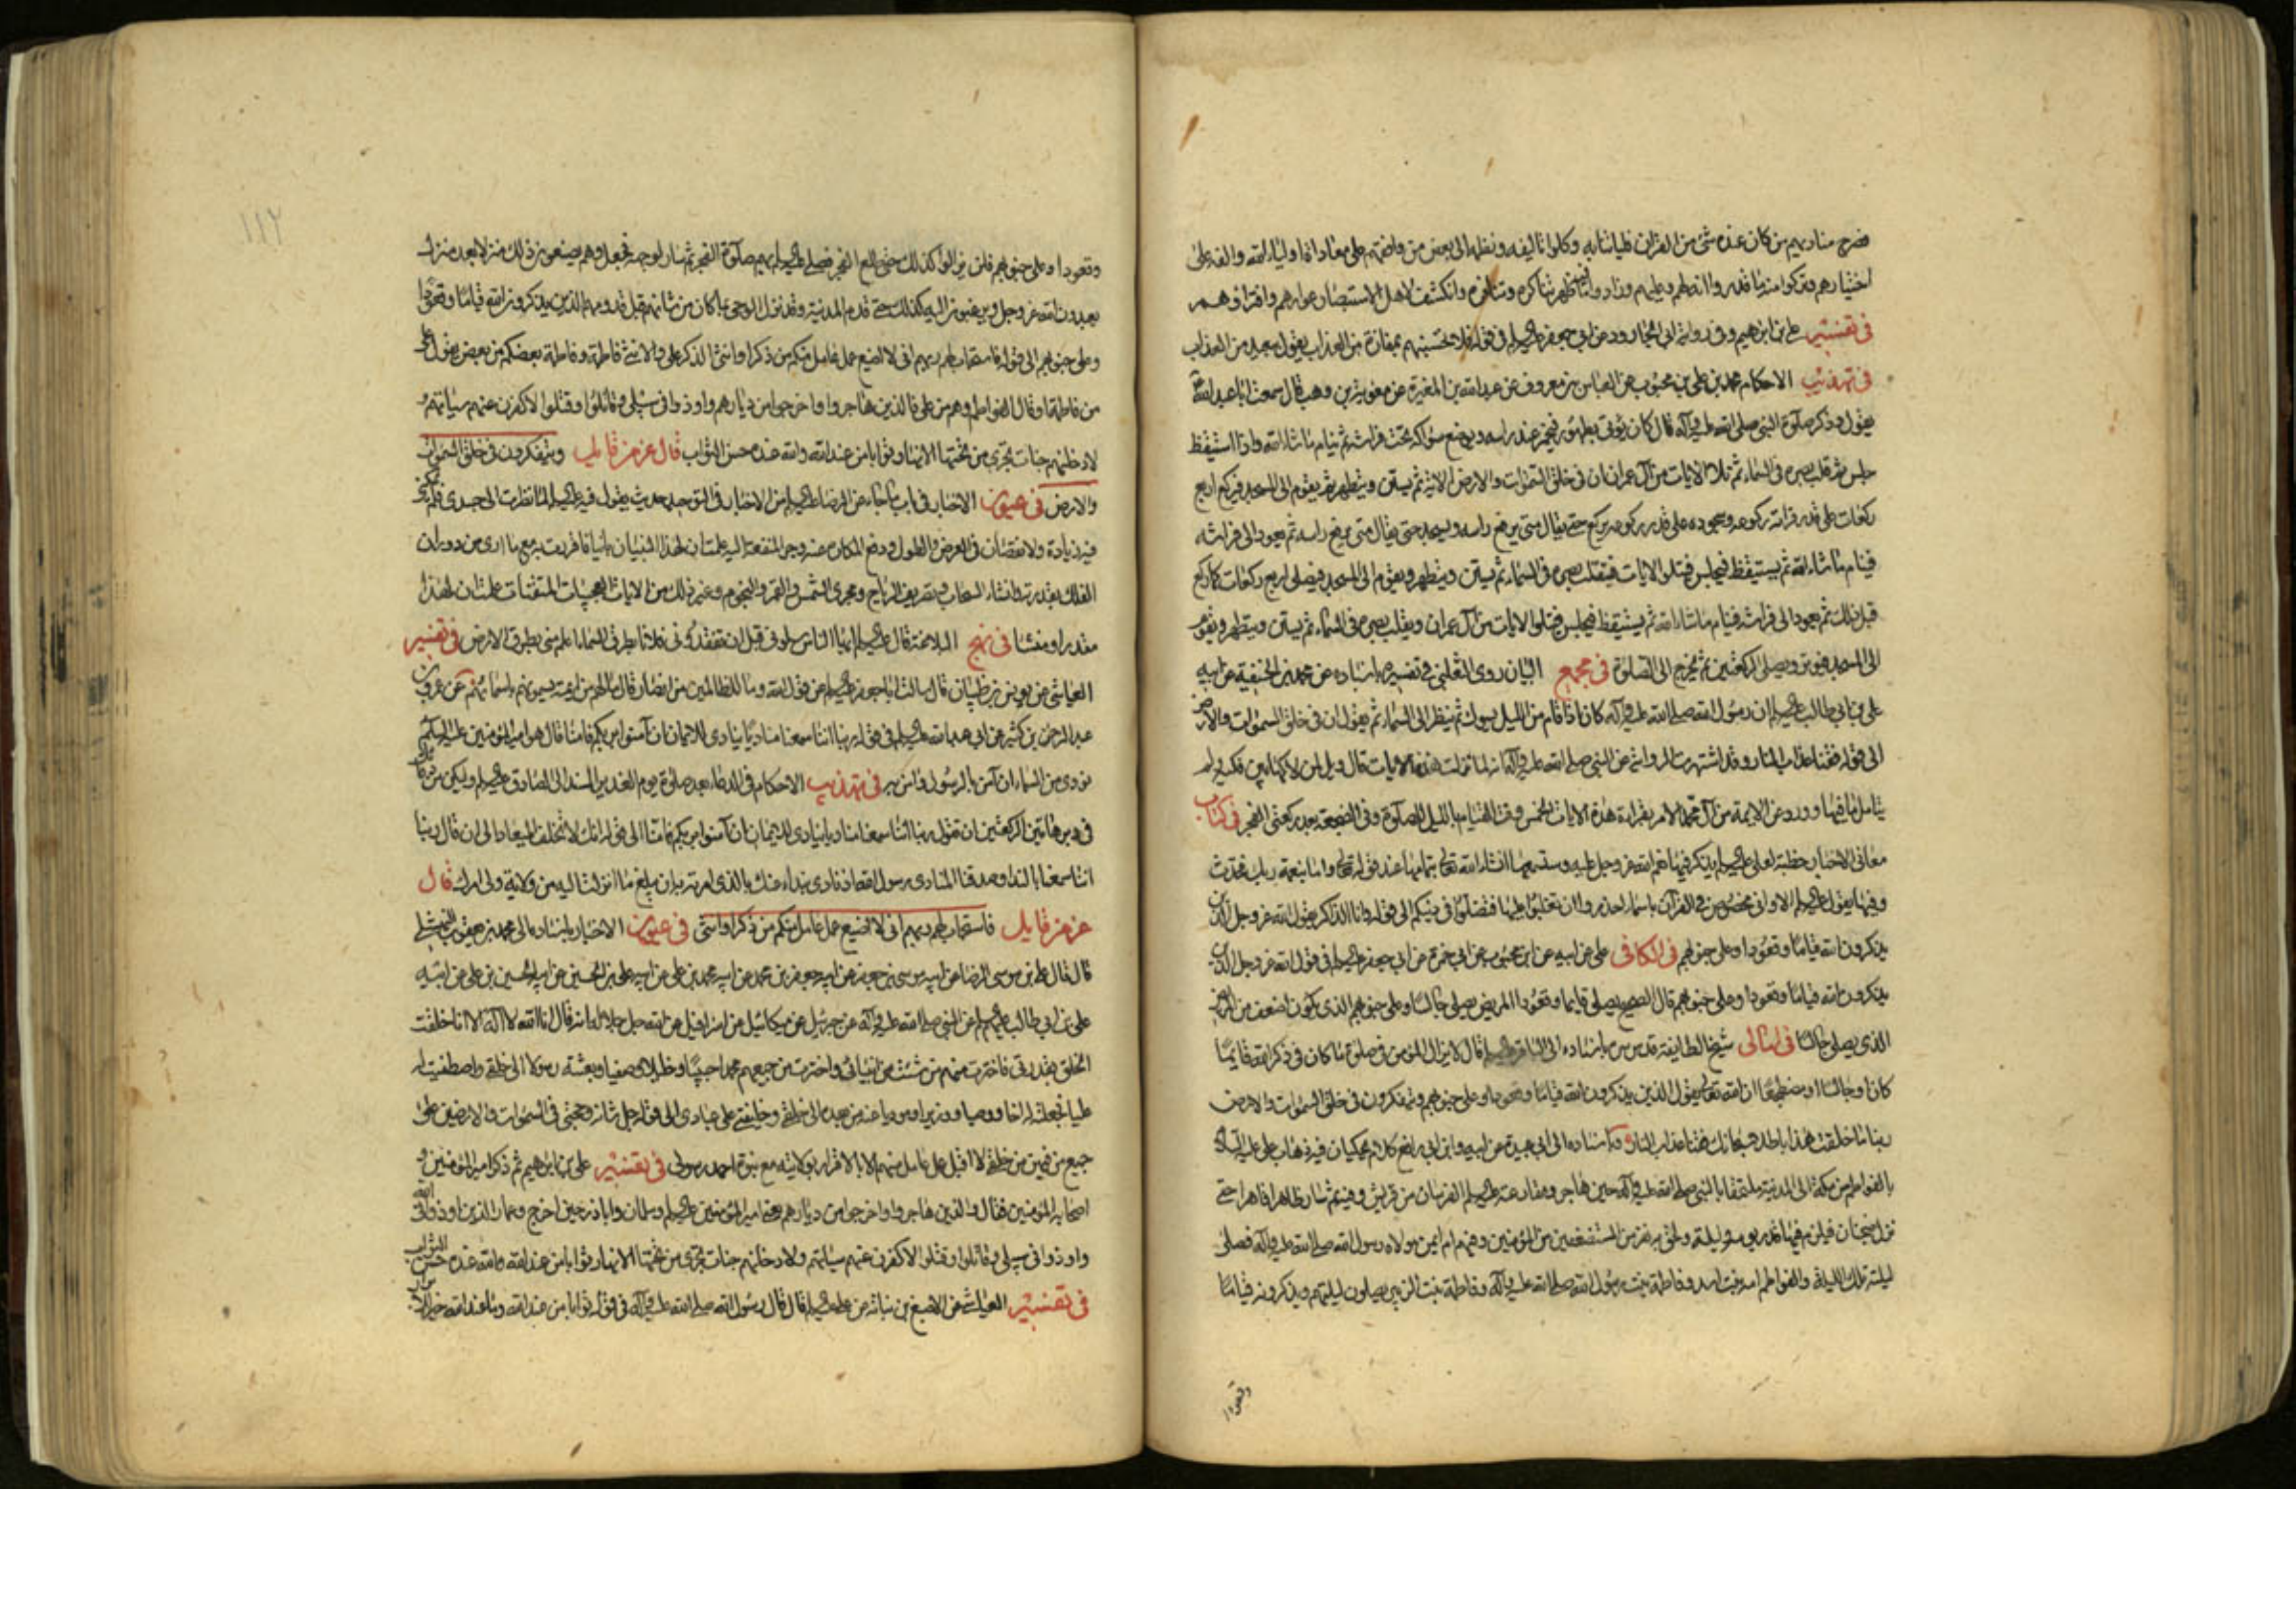 فصرخ مناديهم من كان عنده شئ من القران فلياتنا به و وكلوا تاليفه ونظمه الى بعض من وافقهم على معاداة اولياء الله والفه على
اختيارهم وتركوا منه ما قدروا انه لهم وعليهم وزادوا فيه ما ظهر تناكره وتنافره وانكشف لاهل الاستبصار عوارهم وافتراؤهم
فى تفسير على بن ابرهيم وفى رواية ابى الجارود عن ابى جعفر عليه السلم فى قوله فلا تحسبنهم بمفازة من العذاب يقول ببعيد من العذاب
فى تهذيب الاحكام محمد بن على بن محبوب عن العباس بن معروف عن عبد الله بن المغيرة عن معوية بن وهب قال سمعت ابا عبد الله
يقول وذكر صلوة النبى صلى الله عليه وآله قال كان يؤتى بطهور فيخمر عند راسه ويوضع سواكه تحت فراشه ثم ينام ما شاء الله واذا استيقظ
جلس ثم قلب بصره فى السماء ثم تلا الايات من آل عمران ان فى خلق السموات والارض الاية ثم يستن ويتطهر ثم يقوم الى المسجد فيركع اربع
ركعات على قدر قرائته ركوعه وسجوده على قدر ركوعه يركع حتى يقال متى يرفع راسه ويسجد حتى يقال متى يرفع راسه ثم يعود الى فراشه
فينام ما شاء الله ثم يستيقظ فيجلس فيتلو الايات فيقلب بصره فى السماء ثم يستن ويتطهر ويقوم الى المسجد فيصلى اربع ركعات كما ركع
قبل ذلك ثم يعود الى فراشه فينام ما شاء الله ثم يستيقظ فيجلس فيتلو الايات من آل عمران ويقلب بصره فى السماء ثم يستن ويتطهر ويقوم
الى المسجد فيوتر ويصلى الركعتين ثم يخرج الى الصلوة فى مجمع البيان روى الثعلبى فى تفسيره باسناده عن محمد بن الحنفية عن ابيه
على بن ابى طالب عليه السلم ان رسول الله صلى الله عليه وآله كان اذا قام من الليل يسوك ثم ينظر الى السماء ثم يقول ان فى خلق السموات والارض
الى قوله فقنا عذاب النار وقد اشتهرت الرواية عن النبى صلى الله عليه وآله انه لما نزلت هذه الايات قال ويل لمن لاكها بين فكيه ولم
يتامل ما فيها وورد عن الائمة من آل محمد الامر بقراءة هذه الايات الخمس وقت القيام بالليل للصلوة وفى الضجعة بعد ركعتى الفجر فى كتاب
معانى الاخبار خطبة لعلى عليه السلم يذكر فيها نعم الله عز وجل عليه وستسمعها انشاء الله تعالى بتمامها عند قوله تعالى واما بنعمة ربك فحدث
وفيها يقول عليه السلم الا وانى مخصوص فى القرآن باسماء احذروا ان تغلبوا عليها فتضلوا فى دينكم الى قوله وانا الذاكر يقول الله عز وجل الذين
يذكرون الله قياما وقعودا وعلى جنوبهم فى الكافى على عن ابيه عن ابن محبوب عن ابى حمزة عن ابى جعفر عليه السلم فى قول الله عز وجل الذين
يذكرون الله قياما وقعودا وعلى جنوبهم قال الصحيح يصلى قايما وقعودا المريض يصلى جالسا وعلى جنوبهم الذى يكون اضعف من المريض
الذى يصلى جالسا فى امالى شيخ الطايفة قدس سره باسناده الى الباقر عليه السلم قال لا يزال المؤمن فى صلوة ما كان فى ذكر الله قايما
كان او جالسا او مضطجعا ان الله تعالى يقول الذين يذكرون الله قياما وقعودا وعلى جنوبهم ويتفكرون فى خلق السموات والارض
ربنا ما خلقت هذا باطلا سبحانك فقنا عذاب النار وباسناده الى ابى عبيدة عن ابيه وابن ابى رافع كلام يحكيان فيه ذهاب على عليه السلام
بالفواطم من مكة الى المدينة ملتحقا بالنبى صلى الله عليه وآله حين هاجر ومقارعته عليه السلم الفرسان من قريش وفيه ثم سار ظاهرا قاهرا حتى
نزل ضجنان فيلزم فيها قدر يومه وليلته ولحق به نفر من المستضعفين من المؤمنين وفيهم ام ايمن مولاة رسول الله صلى الله عليه وآله فصلى
ليلته تلك الليلة والفواطم امه بنت اسد وفاطمة بنت رسول الله صلى الله عليه وآله وفاطمة بنت الزبير يصلون ليلتهم ويذكرونه قياما
وقعودا
١١٢
وقعودا وعلى جنوبهم فلن يزالوا كذلك حتى طلع الفجر فصلى عليه السلم بهم صلوة الفجر ثم سار لوجهه فجعل وهم يصنعون ذلك منزلا بعد منزل
يعبدون الله عز وجل ويرغبون اليه كذلك حتى قدم المدينة وقد نزل الوحى بما كان من شانهم قبل قدومهم الذين يذكرون الله قياما وقعودا
وعلى جنوبهم الى قوله فاستجاب لهم ربهم انى لا اضيع عمل عامل منكم من ذكر او انثى الذكر على والانثى فاطمة وفاطمة بعضكم من بعض يقول على
من فاطمة او قال الفواطم وهم من على فالذين هاجروا واخرجوا من ديارهم واوذوا فى سبيلى وقاتلوا وقتلوا لاكفرن عنهم سيئاتهم و
لادخلنهم جنات تجرى من تحتها الانهار ثوابا من عند الله والله عنده حسن الثواب قال عز من قايل ويتفكرون فى خلق السموات
والارض فى عيون الاخبار فى باب ما جاء عن الرضا عليه السلم من الاخبار فى التوحيد حديث يقول فيه عليه السلم لما نظرت الى جسدى فلم يمكنى
فيه زيادة ولا نقصان فى العرض والطول ودفع المكاره عنه وجر المنفعة اليه علمت ان لهذا البنيان بانيا فاقررت به مع ما ارى من دوران
الفلك بقدرته وانشاء السحاب وتصريف الرياح ومجرى الشمس والقمر والنجوم وغير ذلك من الايات العجيبات المتقنات علمت ان لهذا
مقدرا ومنشئا فى نهج البلاغة قال عليه السلم ايها الناس سلونى قبل ان تفقدونى فلانا بطرق السماء اعلم منى بطرق الارض فى تفسير
العياشى عن يونس بن ظبيان قال سالت ابا جعفر عليه السلم عن قول الله وما للظالمين من انصار قال ما لهم من ائمة يسمونهم باسمائهم عن عمرو بن
عبد الرحمن بن كثير عن ابى عبد الله عليه السلم فى قوله ربنا اننا سمعنا مناديا ينادى للايمان ان آمنوا بربكم فامنا قال هو امير المؤمنين عليه السلم
نودى من السماء ان آمن بالرسول فامن به فى تهذيب الاحكام فى الدعاء بعد صلوة يوم الغدير المسند الى الصادق عليه السلم وليكن من دعائك
فى دبر هاتين الركعتين ان تقول ربنا اننا سمعنا مناديا ينادى للايمان ان آمنوا بربكم فامنا الى قوله انك لا تخلف الميعاد الى ان قال ربنا
اننا سمعنا بالنداء وصدقنا المنادى رسول الله اذ نادى بنداء عنك بالذى امرته به ان يبلغ ما انزلت اليه من ولاية ولى امرك قال
عز من قايل فاستجاب لهم ربهم انى لا اضيع عمل عامل منكم من ذكر او انثى فى عيون الاخبار باسناده الى محمد بن يعقوب النهشلى
قال قال على بن موسى الرضا عن ابيه موسى بن جعفر عن ابيه جعفر بن محمد عن ابيه محمد بن على عن ابيه على بن الحسين عن ابيه الحسين بن على عن ابيه
على بن ابى طالب عليهم السلم عن النبى صلى الله عليه وآله عن جبرئيل عن ميكائيل عن اسرافيل عن الله جل جلاله انه قال انا الله لا اله الا انا خلقت
الخلق بقدرتى فاخترت منهم من شئت من انبيائى واخترت من جميعهم محمدا حبيبا وخليلا وصفيا وبعثته رسولا الى خلقى واصطفيت له
عليا فجعلته له اخا ووصيا ووزيرا ومؤديا عنه من بعده الى خلقى وخليفتى على عبادى الى قوله جل شانه وحجتى فى السموات والارضين على
جميع من فيهن من خلقى لا اقبل عمل عامل منهم الا بالاقرار بولايته مع نبوة احمد رسولى فى تفسير على بن ابرهيم ثم ذكر امير المؤمنين و
اصحابه المؤمنين فقال والذين هاجروا واخرجوا من ديارهم يعنى امير المؤمنين عليه السلم وسلمان وابا ذر حين اخرج وعمار الذين اوذوا فى الله
واوذوا فى سبيلى وقاتلوا وقتلوا لاكفرن عنهم سيئاتهم ولادخلنهم جنات تجرى من تحتها الانهار ثوابا من عند الله والله عنده حسن الثواب
فى تفسير العياشى عن الاصبغ بن نباتة عن على عليه السلم قال قال رسول الله صلى الله عليه وآله فى قوله ثوابا من عند الله وما عند الله خير للابرار